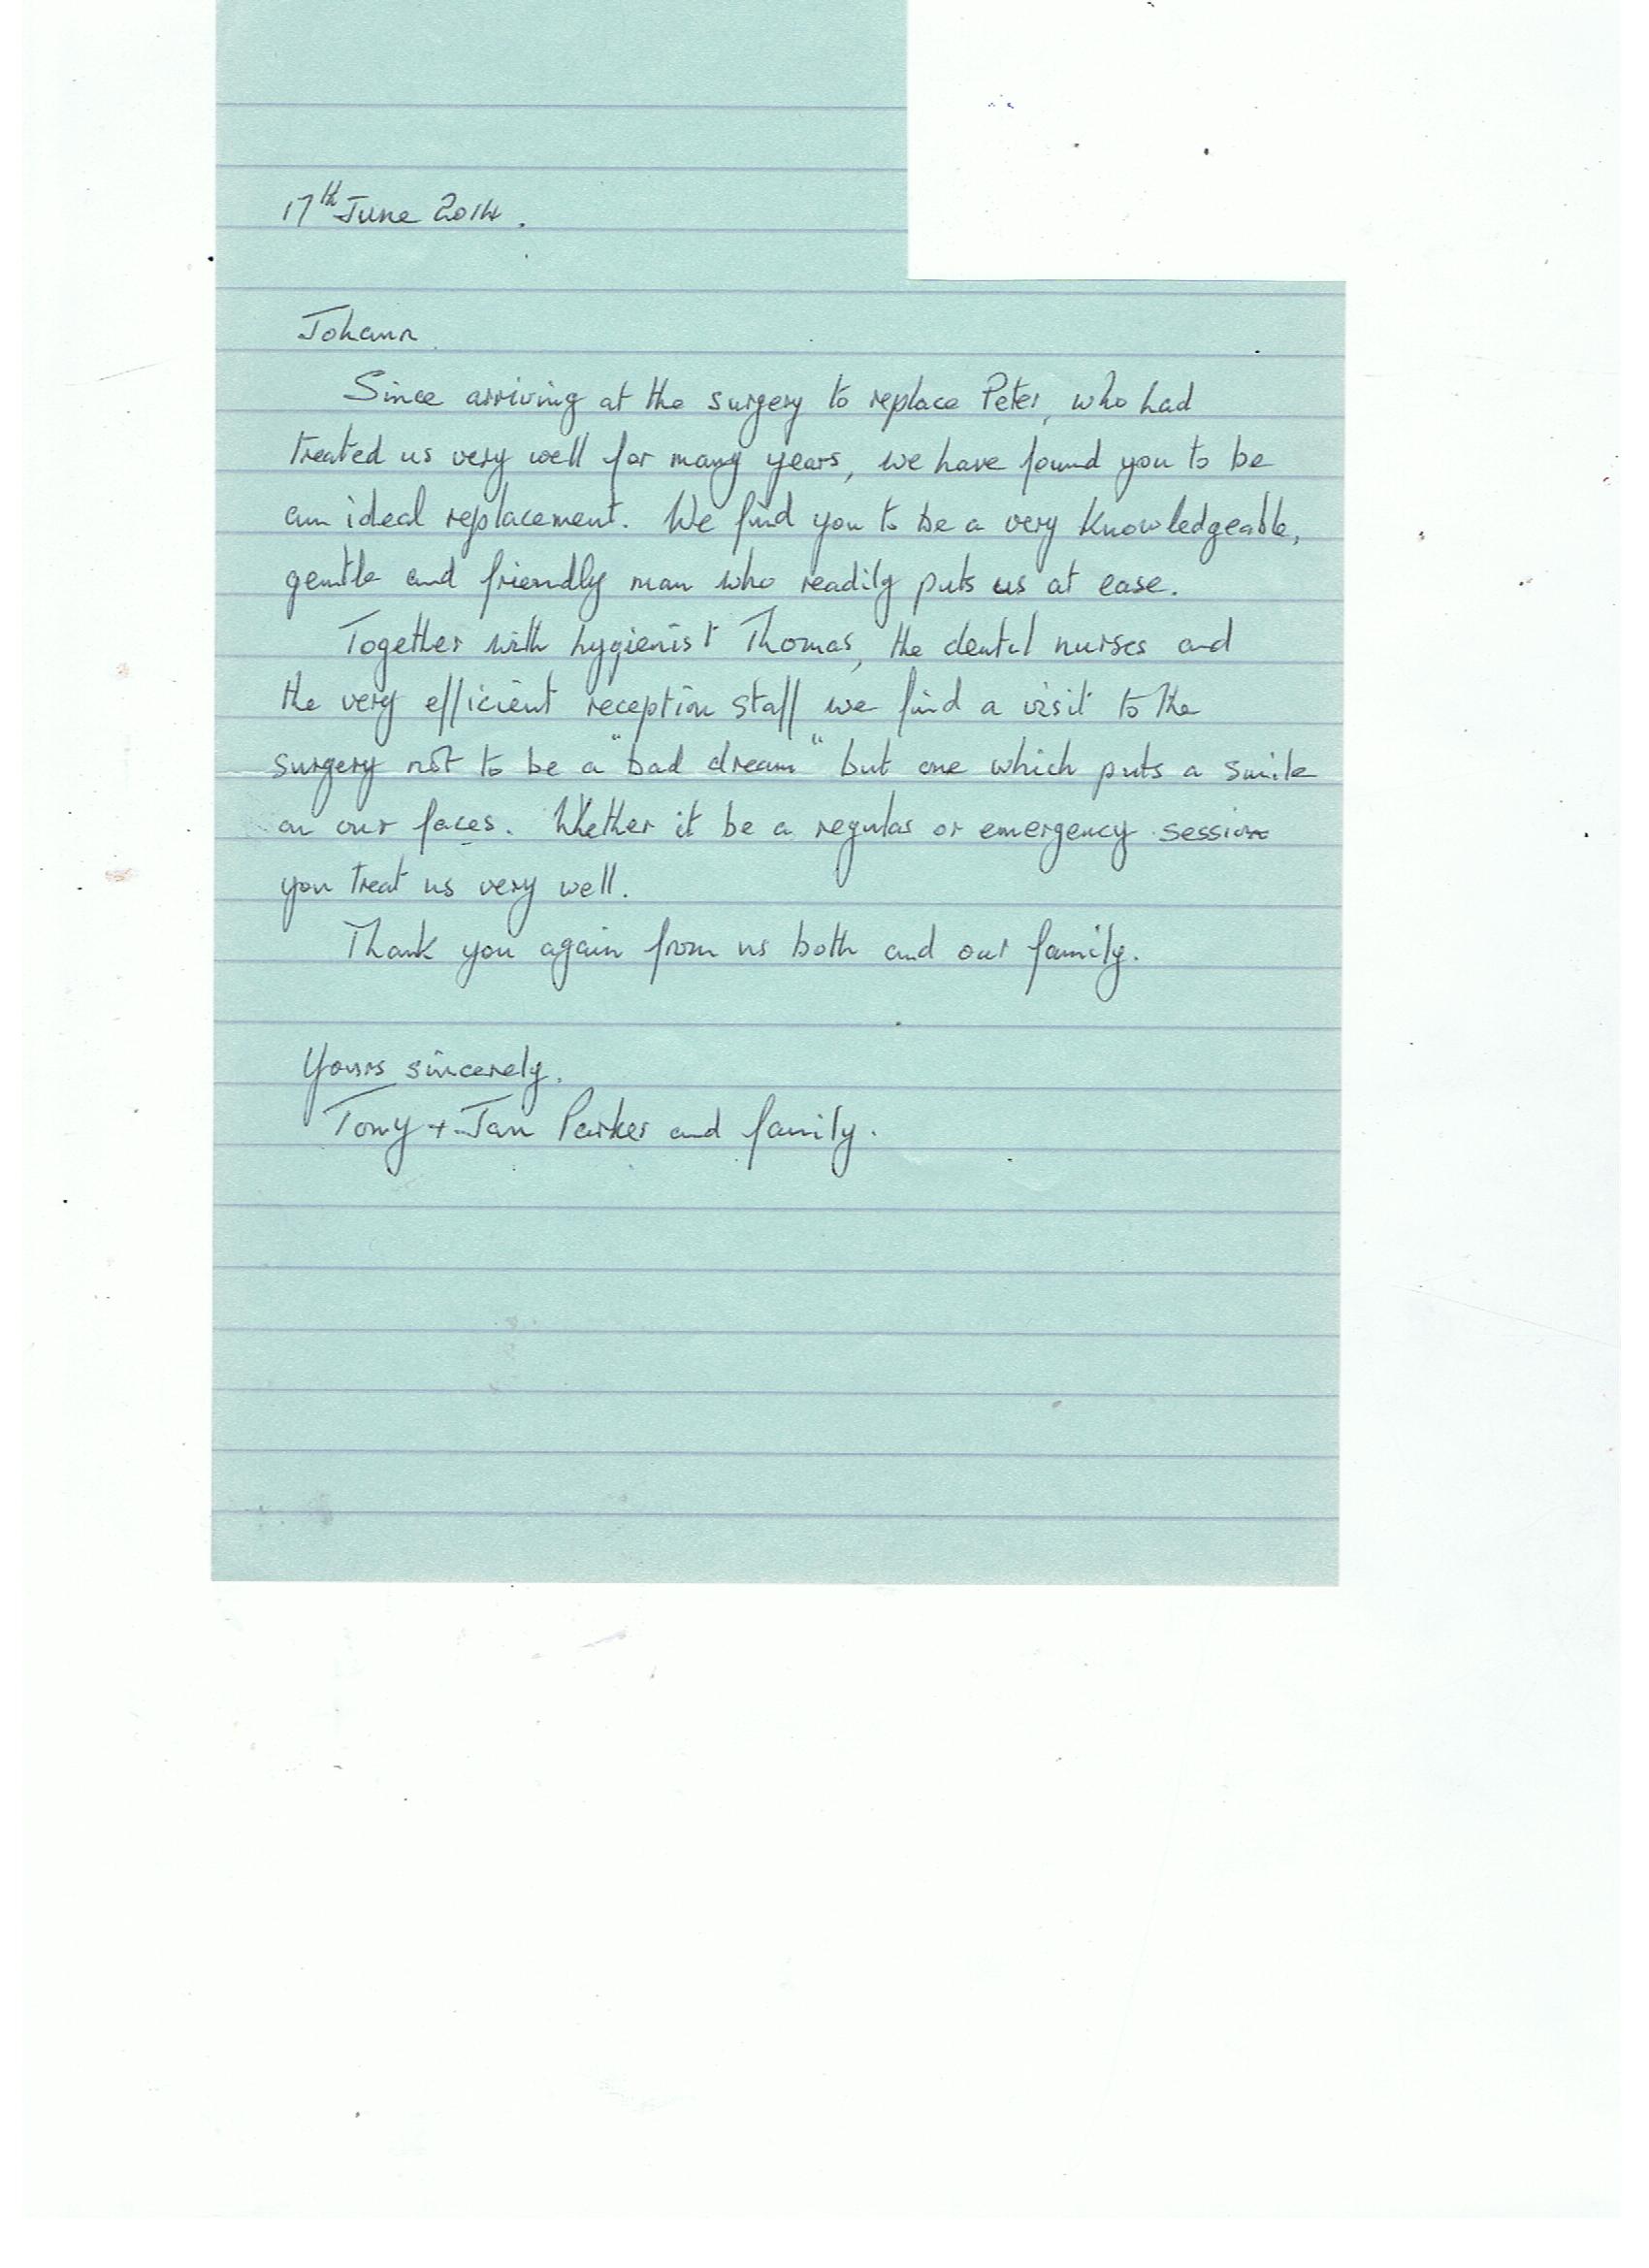 17th June 2014.
Johann
Since arriving at the surgery to replace Peter, who had
treated us very well for many years, we have found you to be
an ideal replacement. We find you to be a very knowledgeable,
gentle and friendly man who readily puts us at ease.
Together with hygienist Thomas, the dental nurses and
the very efficient reception staff we find a visit to the
surgery not to be a "bad dream" but one which puts a smile
on our faces. Whether it be a regular or emergency session
you treat us very well.
Thank you again from us both and our family.
Yours sincerely.
Tony + Jan Parker and family.